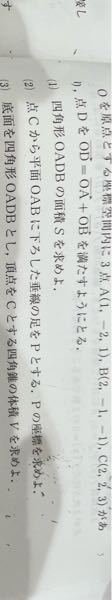 Oを原点とする座標空間内に3点A(1, -2, 1), B(2, -1, -1), C(2, 2, 3)があ
り,点Dを OD = OA + OB を満たすようにとる.
(1) 四角形OADBの面積Sを求めよ.
(2) 点Cから平面OABに下ろした垂線の足をPとする.Pの座標を求めよ.
(3) 底面を四角形OADBとし,頂点をCとする四角錐の体積Vを求めよ.